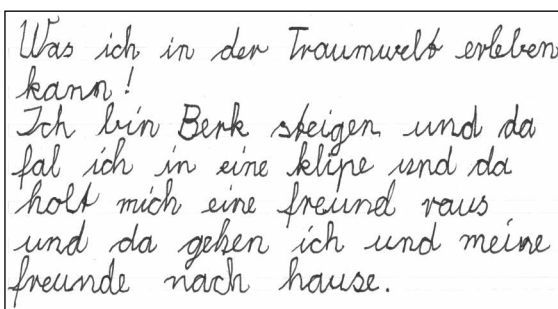 Was ich in der Traumwelt erleben
kann!
Ich bin Berk steigen und da
fal ich in eine klipe und da
holt mich eine freund raus
und da gehen ich und meine
freunde nach hause.